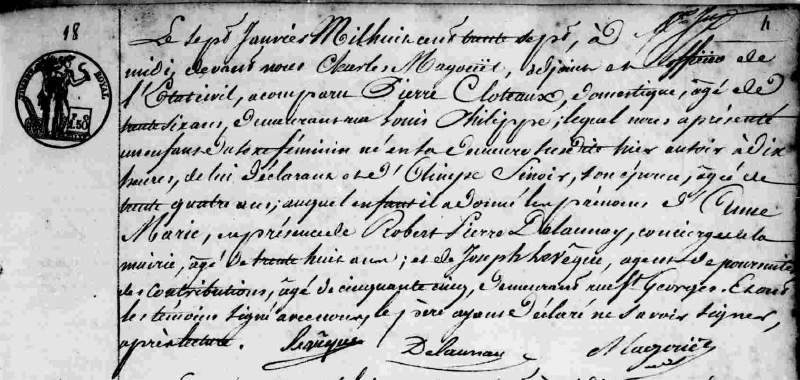 18
4
Le sept Janvier Mil huit cent trente sept, à
midi, devant nous Charles Magouët, adjoint et officier de
l'Etat civil, a comparu Pierre Cloteaux, domestique, âgé de
trente six ans, demeurant rue Louis Philippe; lequel nous a présenté
un enfant du sexe féminin né en sa demeure susdite hier au soir à dix
heures, de lui déclarant et d'Olimpe Sinoir, son épouse, âgée de
trente quatre ans; auquel enfant il a donné les prénoms d'Anne
Marie, en présence de Robert Pierre Delaunay, concierge de la
mairie, âgé de trente huit ans; et de Joseph Levêque, agent de poursuites
des contributions, âgé de cinquante cinq, demeurant rue St Georges. Et ont
les témoins signé avec nous, le père ayant déclaré ne savoir signer,
après lecture. Levêque Delaunay